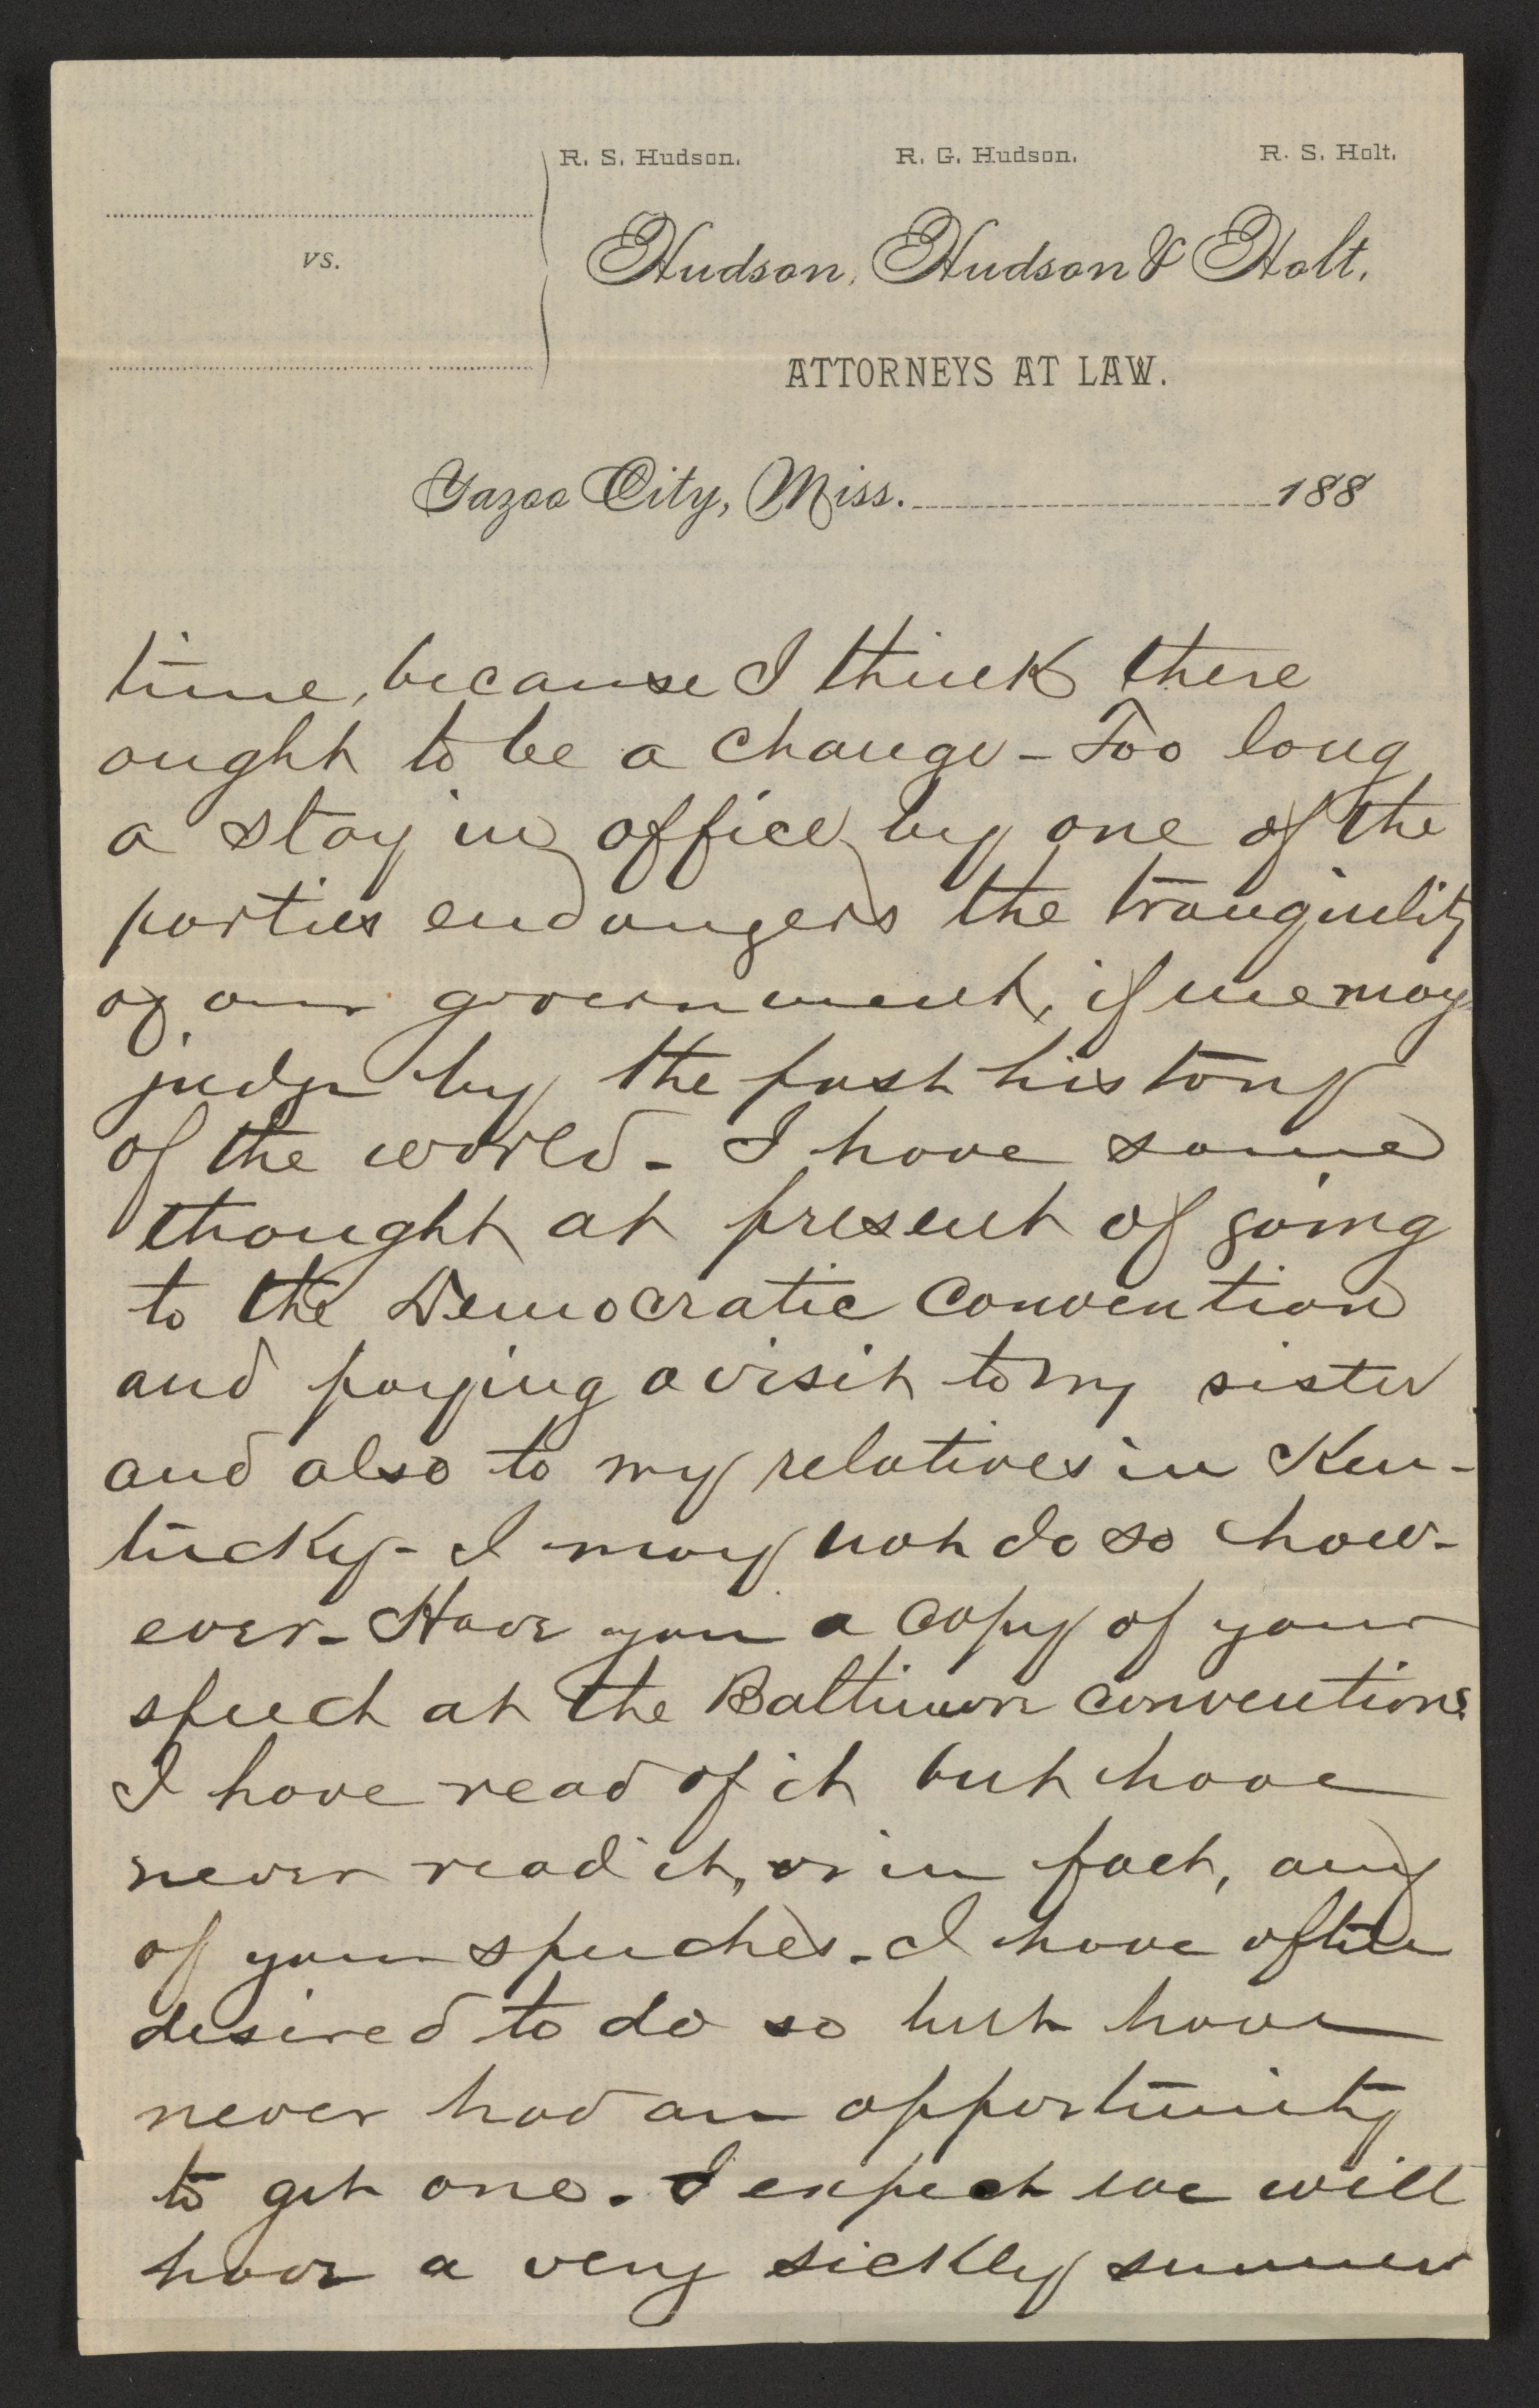 R. S. Hudson. R. G. Hudson. R. S. Holt.
vs.
Hudson, Hudson & Holt.
ATTORNEYS AT LAW.
Yazoo City, Miss. 188
time, because I think there
ought to be a change - Too long
a stay in office by one of the
parties endangers the tranquility
of our government, if we may
judge by the past history
of the world - I have some
thought at present of going
to the Democratic Convention
and paying a visit to my sister
and also to my relatives in Ken-
tucky - I may not do so how-
ever - Have you a copy of your
speech at the Baltimore convention?
I have read of it but have
never read it, or in fact, any
of your speeches - I have often
desired to do so but have
never had an opportunity
to get one. I expect we will
have a very sickly summer